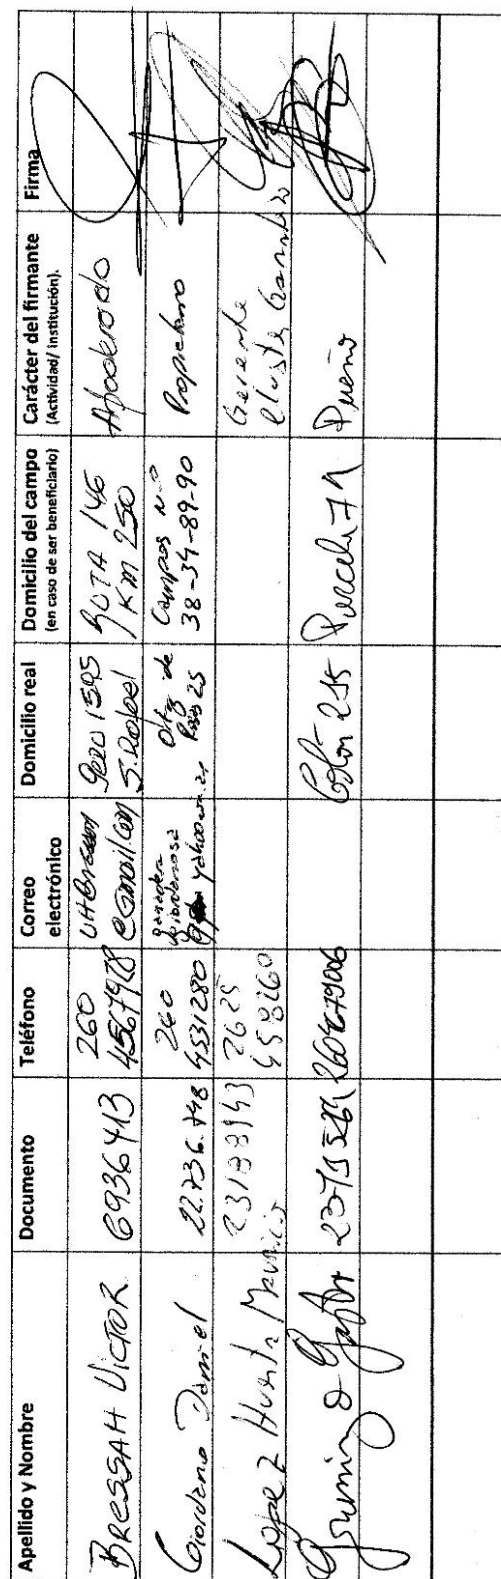 Apellido y Nombre Documento Teléfono Correo electrónico Domicilio real Domicilio del campo (en caso de ser beneficiario) Carácter del firmante (Actividad/ institución). Firma
BRESSAH VICTOR 6936413 260 4567978 @gmail.com 1595 S. Rafael RUTA 146 KM 250 Apoderado
Giordano Daniel 22.736.748 260 4531280 yahoo.com.ar Ortiz de 25 Campos N° 38-34-89-90 Propietario
Lopez Huerta Mauricio 23188143 2625 458260 Gerente Cluster Ganadero
Colón 215 Parcela 71 Dueño